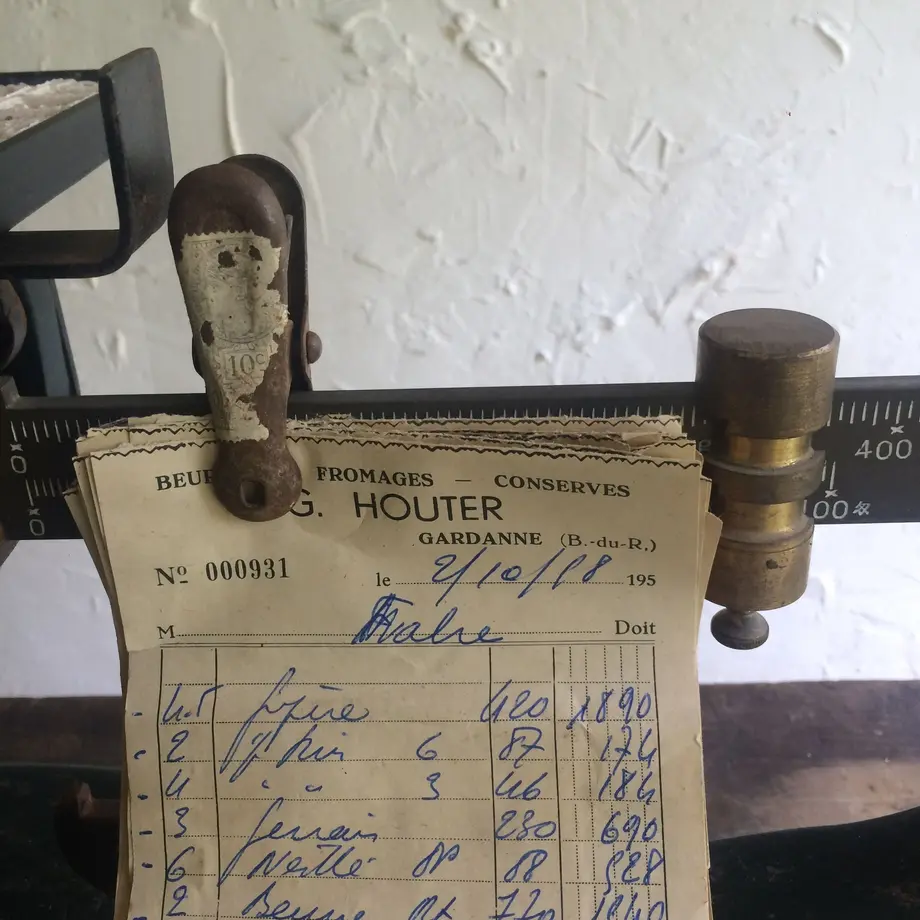 10c
400
0
BEUR FROMAGES — CONSERVES
G. HOUTER
100
0
GARDANNE (B.-du-R.)
Nº 000931 le 2/10/58 195
M Fabre Doit
- 4.5 gruyère 420 1890
- 2 6 87 174
- 4 " " 3 46 184
- 3 Gervais 230 690
- 6 Nestlé 88 528
- 2 Beurre 770 1540